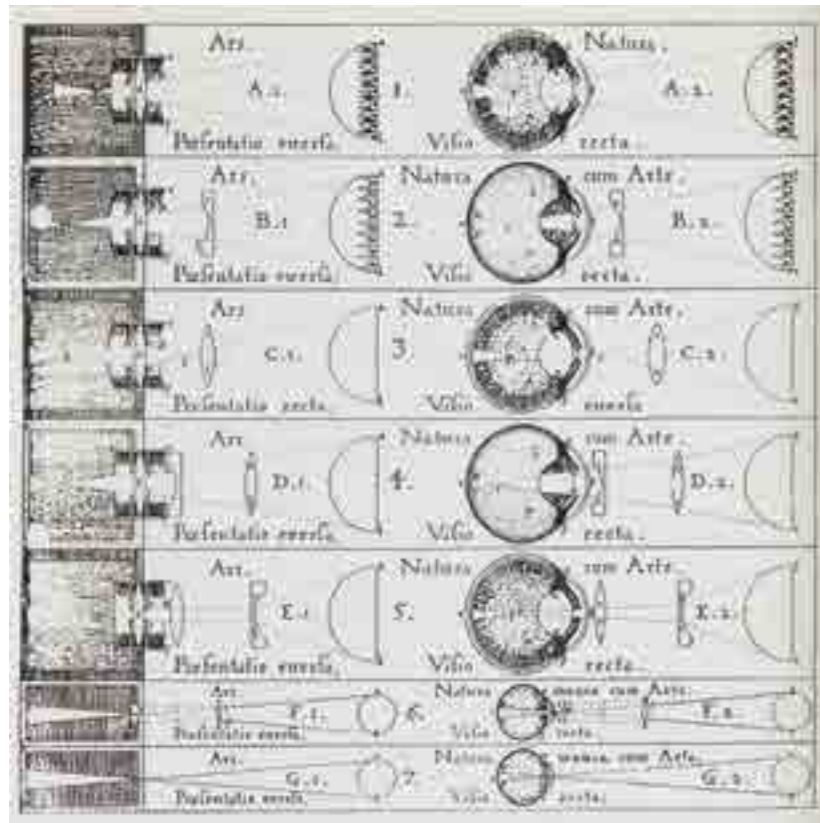 Ars. Natura.
A.1. 1. A.2.
Præsentatio everſa. Viſio recta.
Ars. Natura cum Arte.
B.1 2. B.2.
Præsentatio everſa. Viſio recta.
Ars Natura cum Arte.
C.1. 3 C.2.
Præsentatio recta. Viſio everſa
Ars Natura cum Arte.
D.1. 4. D.2.
Præsentatio everſa. Viſio recta.
Ars. Natura cum Arte.
E.1 5. E.2.
Præsentatio everſa. Viſio recta.
Ars Natura cum Arte.
F.1. 6. F.2.
Præsentatio everſa. Viſio recta.
Ars. Natura cum Arte.
G.1. 7. G.2.
Præsentatio everſa. Viſio recta.